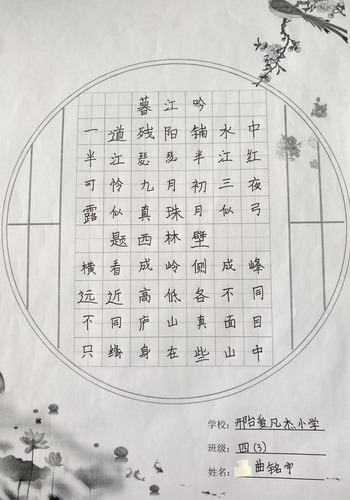 暮江吟
一道残阳铺水中
半江瑟瑟半江红
可怜九月初三夜
露似真珠月似弓
题西林壁
横看成岭侧成峰
远近高低各不同
不同庐山真面目
只缘身在些山中
学校: 邢台 凡杰小学
班级: 四(3)
姓名: 曲铭